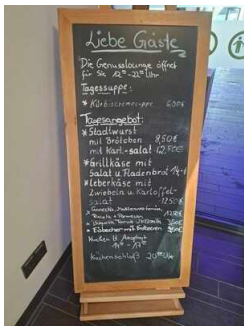 Liebe Gäste
Die Genusslounge öffnet
für Sie 12⁰⁰-22⁰⁰ Uhr
Tagessuppe:
* Kürbiscremesuppe 6,00€
Tagesangebot:
* Stadtwurst
mit Brötchen 8,50€
mit Kart.-salat 12,50€
* Grillkäse mit
Salat u. Fladenbrot 14,-€
* Leberkäse mit
Zwiebeln u. Kartoffel-
salat 12,50€
Rucola + Parmesan
Kuchen
Küchenschluß 20⁰⁰ Uhr